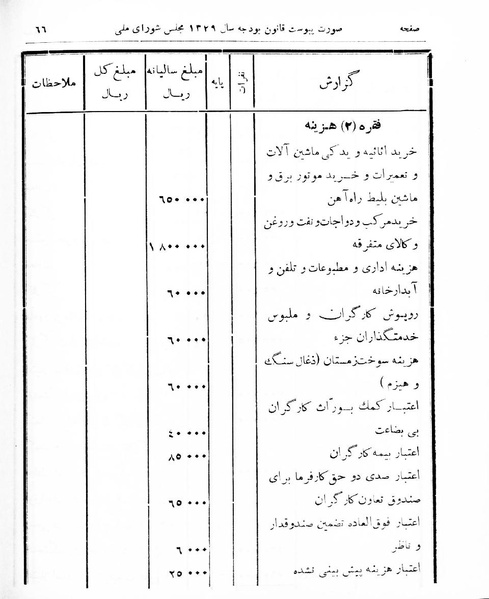 صفحه صورت پیوست قانون بودجه سال ۱۳۲۹ مجلس شورای ملی ۶۶
گزارش نفرات پایه مبلغ سالیانه ریال مبلغ کل ریال ملاحظات
فقره (۲) هزینه
خرید اثاثیه و یدکی ماشین آلات
و تعمیرات و خرید موتور برق و
ماشین بلیط راه‌آهن ۶۵۰ ۰۰۰
خرید مرکب و دواجات و نفت و روغن
و کالای متفرقه ۱ ۸۰۰ ۰۰۰
هزینه اداری و مطبوعات و تلفن و
آبدارخانه ۶۰ ۰۰۰
روپوش کارگران و ملبوس
خدمتگذاران جزء ۶۰ ۰۰۰
هزینه سوخت زمستان (ذغال سنگ
و هیزم) ۶۰ ۰۰۰
اعتبار کمک بوراث کارگران
بی بضاعت ۴۰ ۰۰۰
اعتبار بیمه کارگران ۸۵ ۰۰۰
اعتبار صدی دو حق کارفرما برای
صندوق تعاون کارگران ۶۵ ۰۰۰
اعتبار فوق‌العاده تضمین صندوقدار
و ناظر ۶ ۰۰۰
اعتبار هزینه پیش بینی نشده ۲۵ ۰۰۰